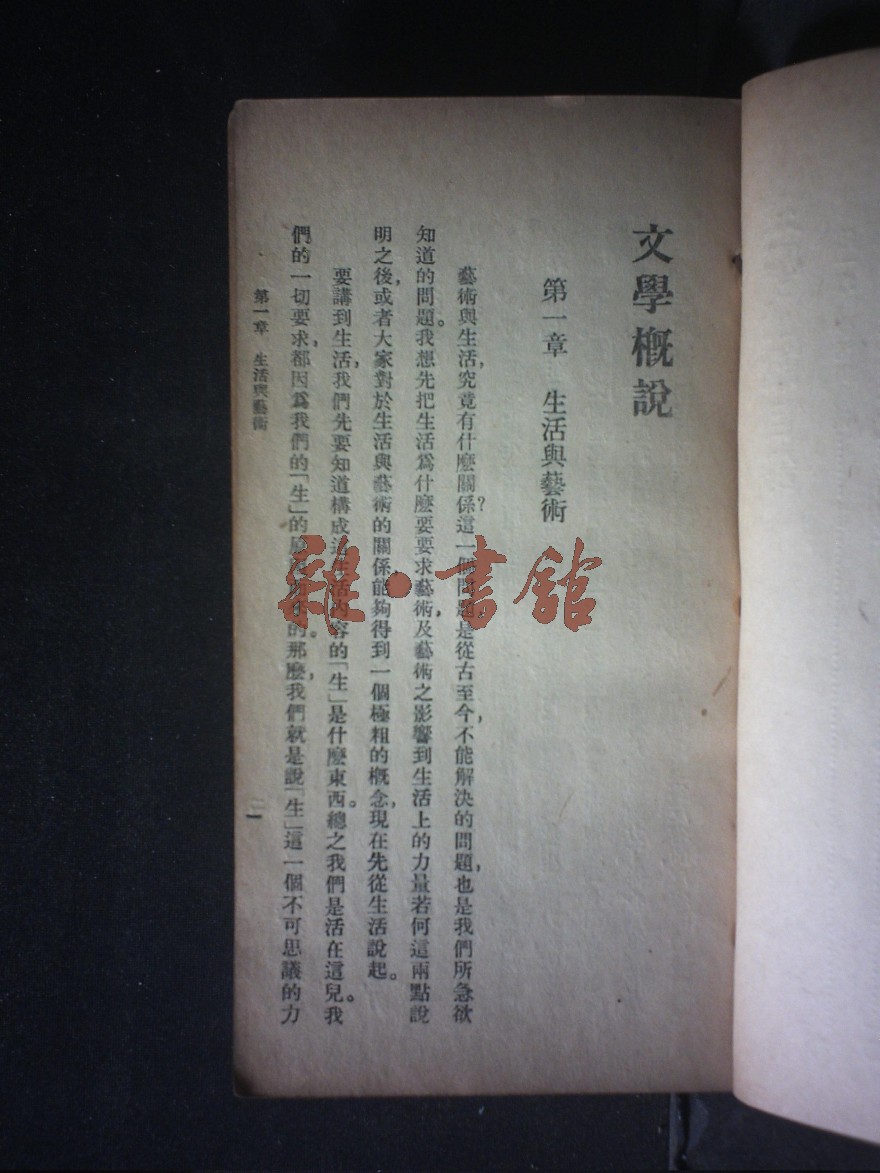 文學概說
第一章　生活與藝術
藝術與生活，究竟有什麽關係？這一個問題是從古至今，不能解決的問題，也是我們所急欲
知道的問題。我想先把生活爲什麽要要求藝術，及藝術之影響到生活上的力量若何這兩點說
明之後，或者大家對於生活與藝術的關係，能夠得到一個極粗的概念，現在先從生活說起。
要講到生活，我們先要知道構成這生活內容的「生」是什麽東西。總之我們是活在這兒。我
們的一切要求，都因爲我們的「生」的的。那麽，我們就是說「生」這一個不可思議的力
第一章　生活與藝術
一
雜·書館